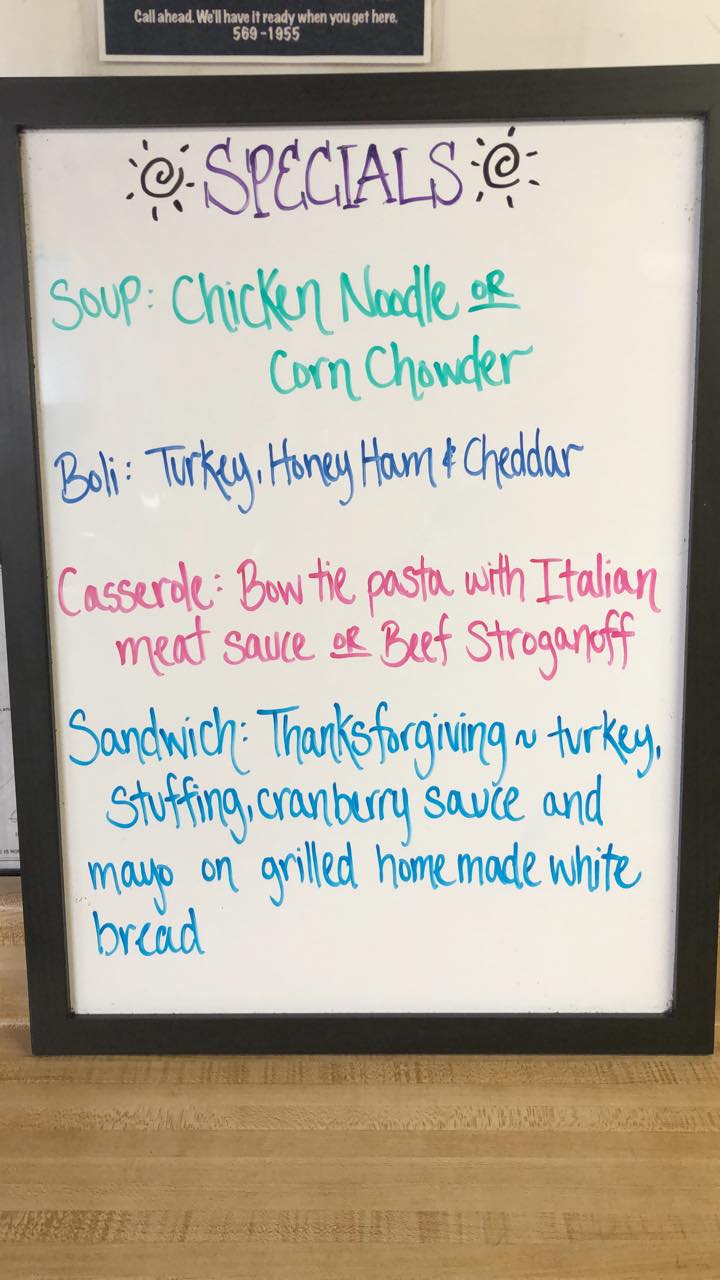 Call ahead. We'll have it ready when you get here.
569-1955
SPECIALS
Soup: Chicken Noodle OR
Corn Chowder
Boli: Turkey, Honey Ham & Cheddar
Casserole: Bow tie pasta with Italian
meat sauce OR Beef Stroganoff
Sandwich: Thanksforgiving ~ turkey,
stuffing, cranberry sauce and
mayo on grilled homemade white
bread